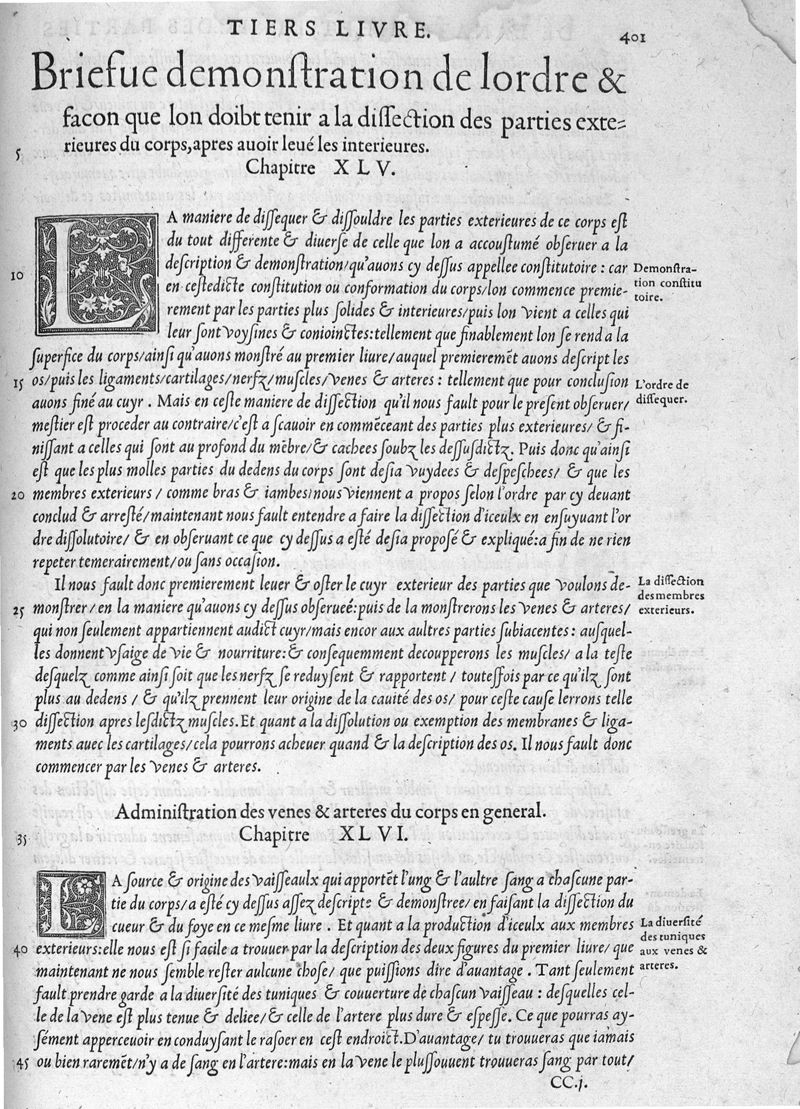 TIERS LIVRE.
401
Briefue demonſtration de lordre &
facon que lon doibt tenir a la diſſection des parties exte=
5
rieures du corps, apres auoir leué les interieures.
Chapitre XLV.
LA maniere de diſſequer & diſſouldre les parties exterieures de ce corps eſt
du tout differente & diuerſe de celle que lon a accouſtumé obſeruer a la
deſcription & demonſtration/qu'auons cy deſſus appellee conſtitutoire : car
Demonſtra-
10
en ceſtedicte conſtitution ou conformation du corps/lon commence premie-
tion conſtitu
rement par les parties plus ſolides & interieures/puis lon vient a celles qui
toire.
leur ſont voyſines & conioinctes:tellement que finablement lon ſe rend a la
ſuperfice du corps/ainſi qu'auons monſtré au premier liure/auquel premieremēt auons deſcript les
15
os/puis les ligaments/cartilages/nerfz/muſcles/venes & arteres : tellement que pour concluſion
L'ordre de
auons finé au cuyr . Mais en ceſte maniere de diſſection qu'il nous fault pour le preſent obſeruer/
diſſequer.
meſtier eſt proceder au contraire/c'eſt a ſcauoir en commēceant des parties plus exterieures/ & fi-
niſſant a celles qui ſont au profond du mēbre/& cachees ſoubz les deſſuſdictz. Puis donc qu'ainſi
eſt que les plus molles parties du dedens du corps ſont deſia vuydees & deſpeſchees/ & que les
20
membres exterieurs / comme bras & iambes/nous viennent a propos ſelon l'ordre par cy deuant
conclud & arreſté/maintenant nous fault entendre a faire la diſſection d'iceulx en enſuyuant l'or
dre diſſolutoire/ & en obſeruant ce que cy deſſus a eſté deſia propoſé & expliqué:a fin de ne rien
repeter temerairement/ou ſans occaſion.
Il nous fault donc premierement leuer & oſter le cuyr exterieur des parties que voulons de-
La diſſection
des membres
25
monſtrer/en la maniere qu'auons cy deſſus obſerueé:puis de la monſtrerons les venes & arteres/
exterieurs.
qui non ſeulement appartiennent audict cuyr/mais encor aux aultres parties ſubiacentes : auſquel-
les donnent vſaige de vie & nourriture:& conſequemment decoupperons les muſcles/ a la teſte
deſquelz comme ainſi ſoit que les nerfz ſe reduyſent & rapportent / touteſfois par ce qu'ilz ſont
plus au dedens / & qu'ilz prennent leur origine de la cauité des os/ pour ceſte cauſe lerrons telle
30
diſſection apres leſdictz muſcles. Et quant a la diſſolution ou exemption des membranes & liga-
ments auec les cartilages/cela pourrons acheuer quand & la deſcription des os. Il nous fault donc
commencer par les venes & arteres.
Adminiſtration des venes & arteres du corps en general.
35
Chapitre XLVI.
LA ſource & origine des vaiſſeaulx qui apportēt l'ung & l'aultre ſang a chaſcune par-
tie du corps/a eſté cy deſſus aſſez deſcripte & demonſtree/en faiſant la diſſection du
cueur & du foye en ce meſme liure . Et quant a la production d'iceulx aux membres
La diuerſité
des tuniques
40
exterieurs:elle nous eſt ſi facile a trouuer par la deſcription des deux figures du premier liure/ que
aux venes &
maintenant ne nous ſemble reſter aulcune choſe/ que puiſſions dire d'auantage . Tant ſeulement
arteres.
fault prendre garde a la diuerſité des tuniques & couuerture de chaſcun vaiſſeau : deſquelles cel-
le de la vene eſt plus tenue & deliee/& celle de l'artere plus dure & eſpeſſe. Ce que pourras ay-
ſément apperceuoir en conduyſant le raſoer en ceſt endroict. D'auantage/ tu trouueras que iamais
45
ou bien raremēt/n'y a de ſang en l'artere:mais en la vene le plus ſouuent trouueras ſang par tout/
CC.j.